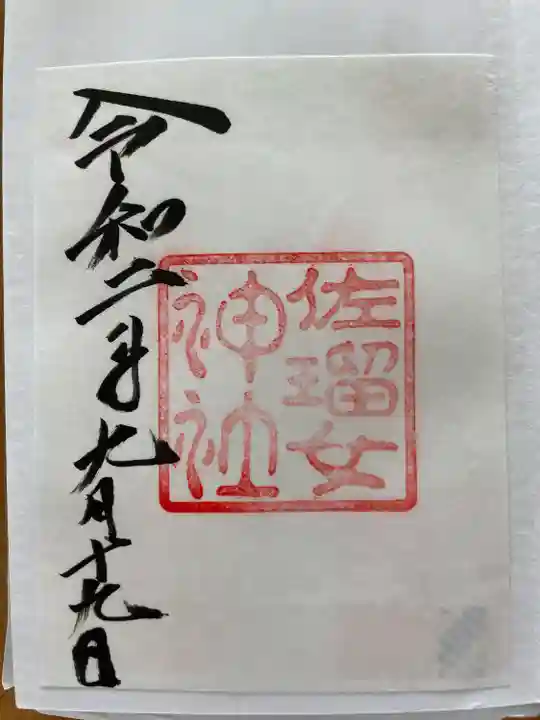 佐瑠女
神社
令和二年九月十九日